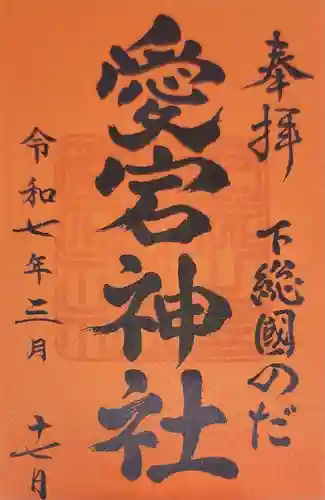 奉拝
下総國のだ
愛宕神社
令和七年三月
十七日